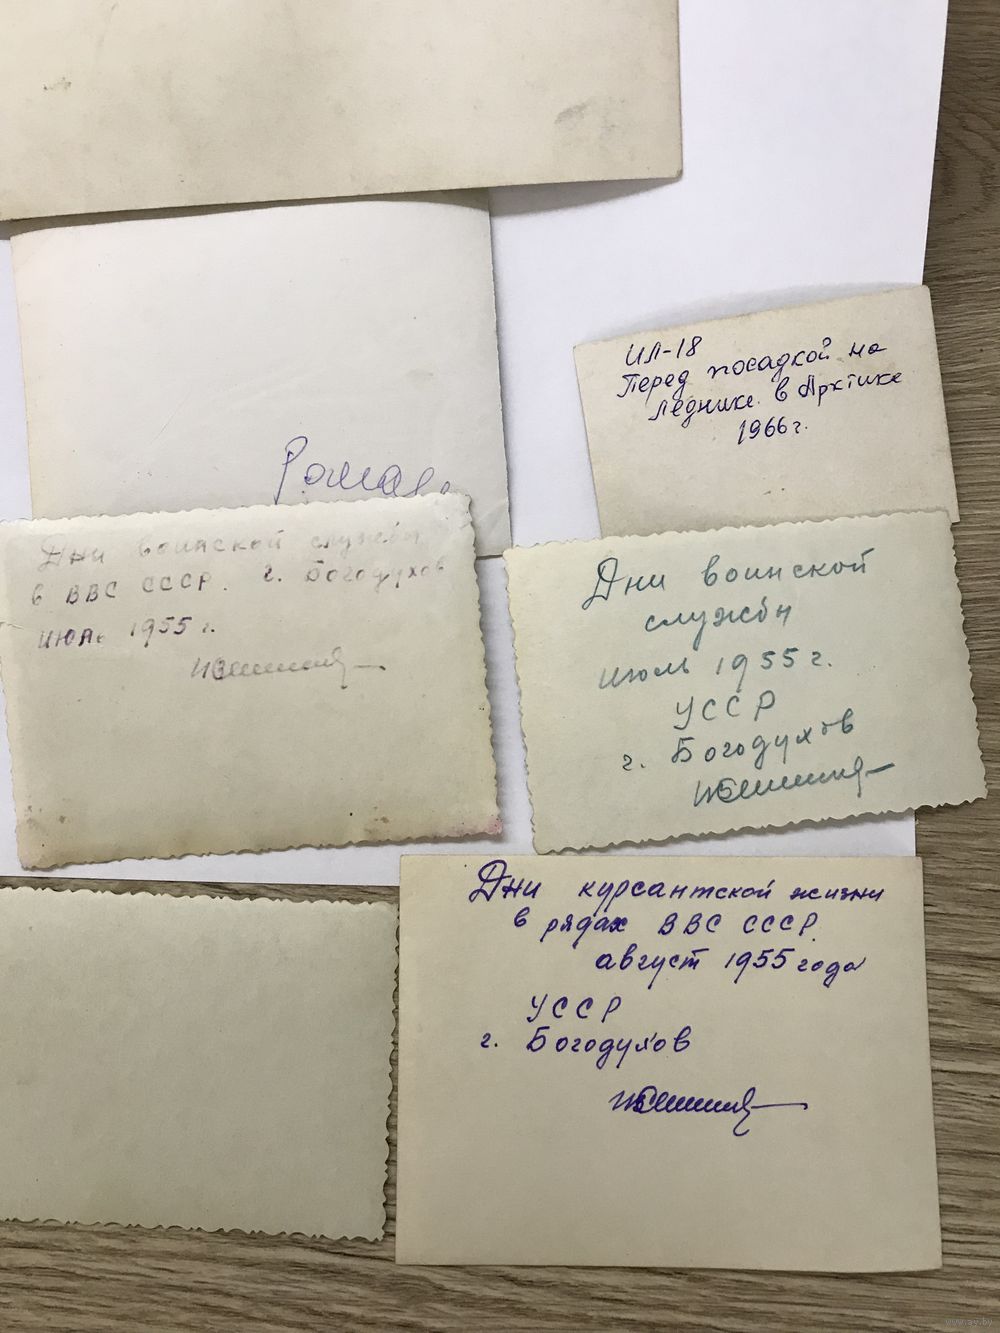 ИЛ-18
Перед посадкой на
леднике в Арктике
1966 г.
Дни воинской службы
в ВВС СССР. г. Богодухов
июль 1955 г.
Дни воинской
службы
июль 1955 г.
УССР
г. Богодухов
Дни курсантской жизни
в рядах ВВС СССР.
август 1955 года
УССР
г. Богодухов
www.ay.by